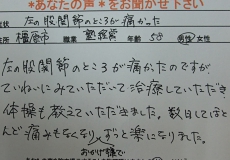 *あなたの声*をお聞かせ下さい
症状 左の股関節のところが痛かった
住所 橿原市 職業 塾経営 年齢 58 男性 女性
左の股関節のところが痛かったのですが
ていねいにみていただいて治療していただき
体操も教えていただきました。数日してほと
んど痛みもなくなり、ずっと楽になりました。
おかげ様で